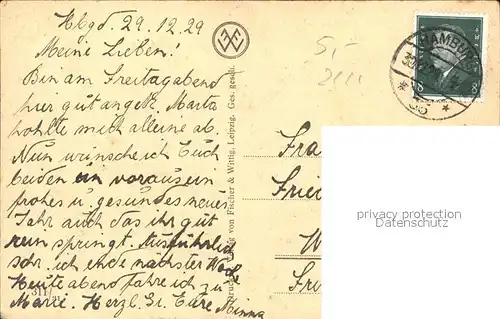 Hbgd. 29.12.29
Meine Lieben!
Bin am Freitagabend
hier gut angek. Marta
hohlte mich alleine ab.
Nun wünsche ich Euch
beiden im voraus ein
frohes u. gesundes neues
Jahr auch das ihr gut
rein springt. Ausführlich
schr. ich ende nächster Woche
Heute abend fahre ich zu
Marie. Herzl. Gr. Eure Minna
Fischer & Wittig, Leipzig. Ges. gesch.
HAMBURG
8 8
5,-
Fra
Fried
privacy protection
Datenschutz
W